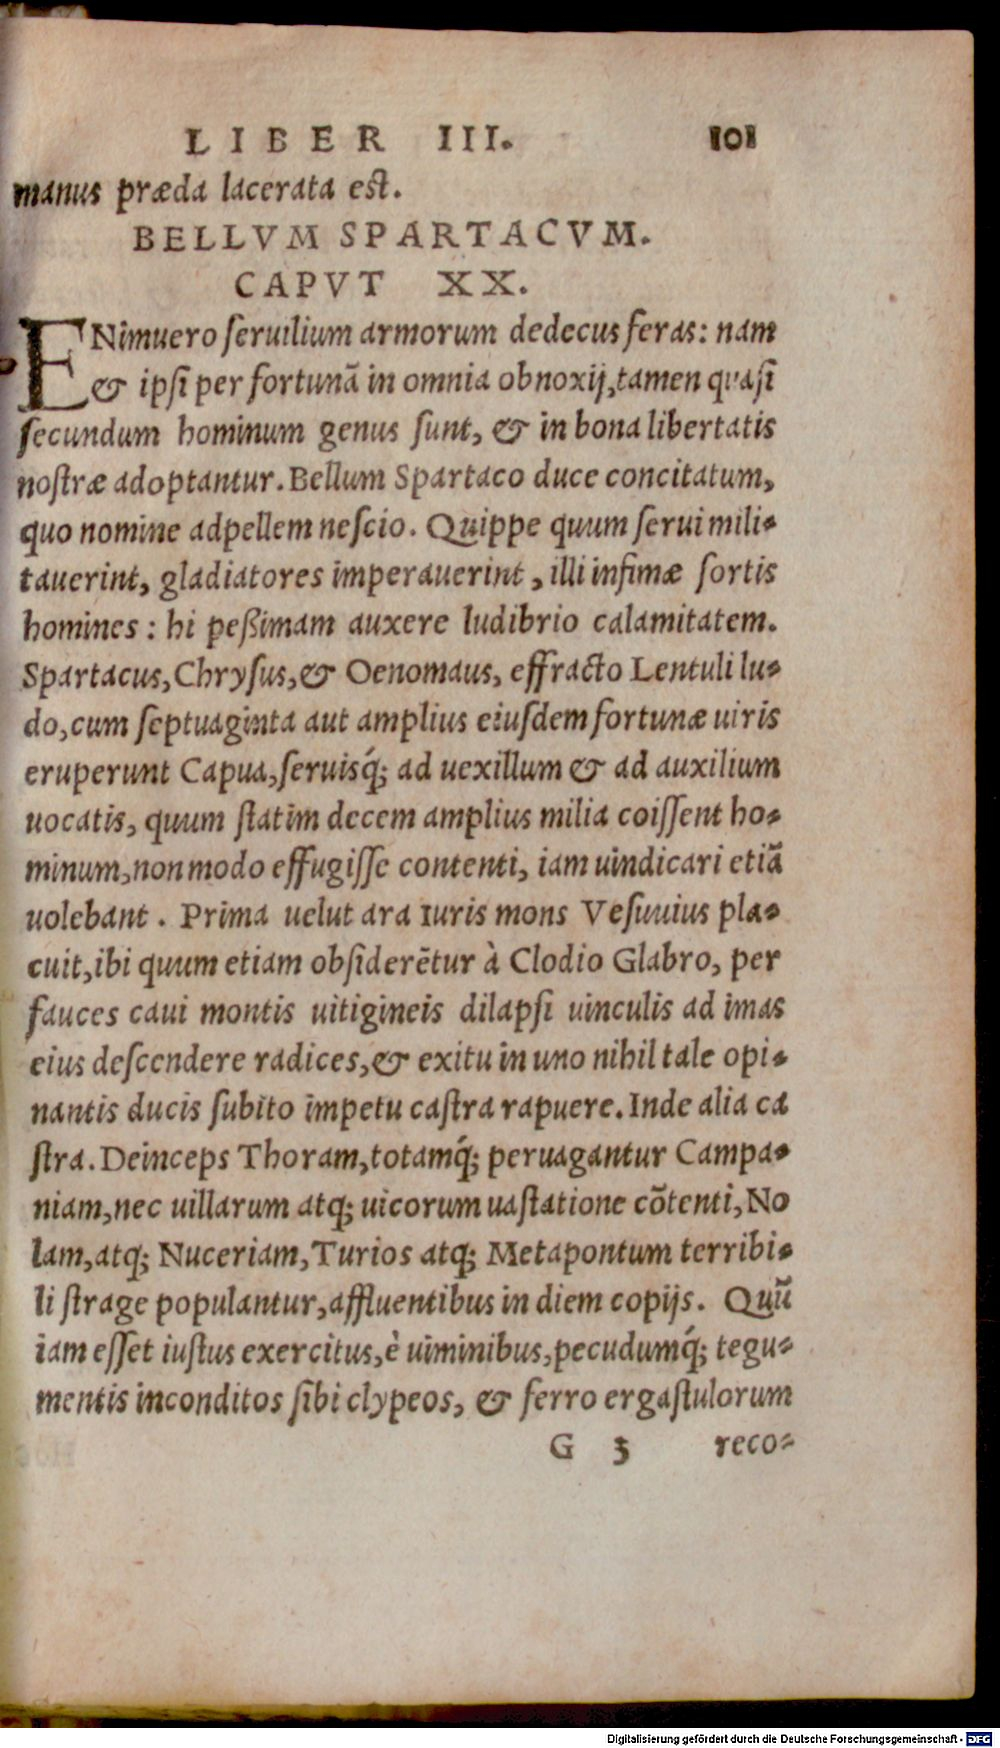 LIBER III. 101
manus præda lacerata est.
BELLVM SPARTACVM.
CAPVT XX.
ENimuero seruilium armorum dedecus feras: nam
& ipsi per fortunā in omnia obnoxij, tamen quasi
secundum hominum genus sunt, & in bona libertatis
nostræ adoptantur. Bellum Spartaco duce concitatum,
quo nomine adpellem nescio. Quippe quum serui mili-
tauerint, gladiatores imperauerint, illi infimæ sortis
homines: hi peßimam auxere ludibrio calamitatem.
Spartacus, Chrysus, & Oenomaus, effracto Lentuli lu-
do, cum septuaginta aut amplius eiusdem fortunæ uiris
eruperunt Capua, seruisq́; ad uexillum & ad auxilium
uocatis, quum statim decem amplius milia coissent ho-
minum, non modo effugisse contenti, iam uindicari etiā
uolebant. Prima uelut ara iuris mons Vesuuius pla-
cuit, ibi quum etiam obsiderētur à Clodio Glabro, per
fauces caui montis uitigineis dilapsi uinculis ad imas
eius descendere radices, & exitu in uno nihil tale opi-
nantis ducis subito impetu castra rapuere. Inde alia ca
stra. Deinceps Thoram, totamq́; peruagantur Campa-
niam, nec uillarum atq; uicorum uastatione cōtenti, No
lam, atq; Nuceriam, Turios atq; Metapontum terribi-
li strage populantur, affluentibus in diem copijs. Quū
iam esset iustus exercitus, è uiminibus, pecudumq́; tegu-
mentis inconditos sibi clypeos, & ferro ergastulorum
G 3 reco-
Digitalisierung gefördert durch die Deutsche Forschungsgemeinschaft - DFG